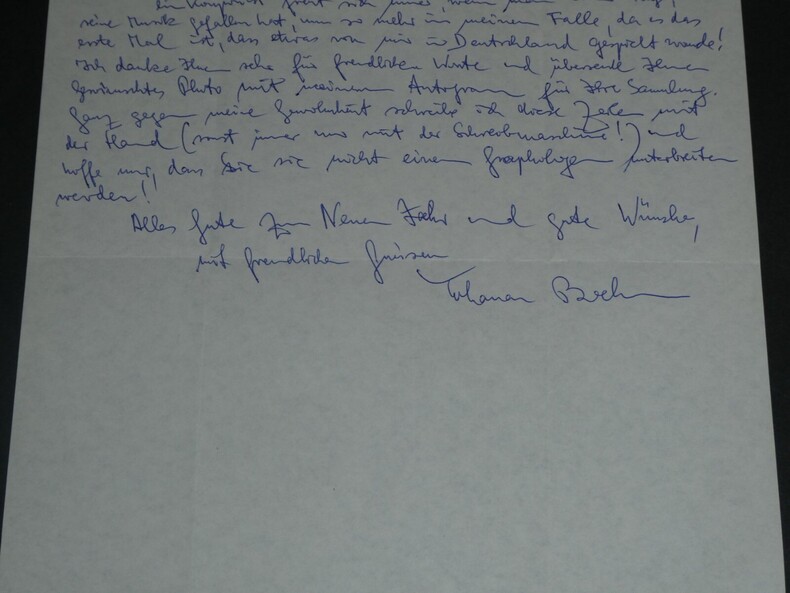 ein Komponist freut sich immer, wenn man ihm sagt,
seine Musik gefallen hat, um so mehr in meinem Falle, da es das
erste Mal ist, dass etwas von mir in Deutschland gespielt wurde!
Ich danke Ihnen sehr für freundlichen Worte und übersende Ihnen
gewünschtes Photo mit meinem Autogram für Ihre Sammlung.
Ganz gegen meine Gewohnheit schreibe ich diese Zeilen mit
der Hand (sonst immer nur mit der Schreibmaschine!) und
hoffe nur, dass Sie sie nicht einem Graphologen unterbreiten
werden!
Alles Gute zum Neuen Jahr und gute Wünsche,
mit freundlichen Grüssen
Yohanan Boehm